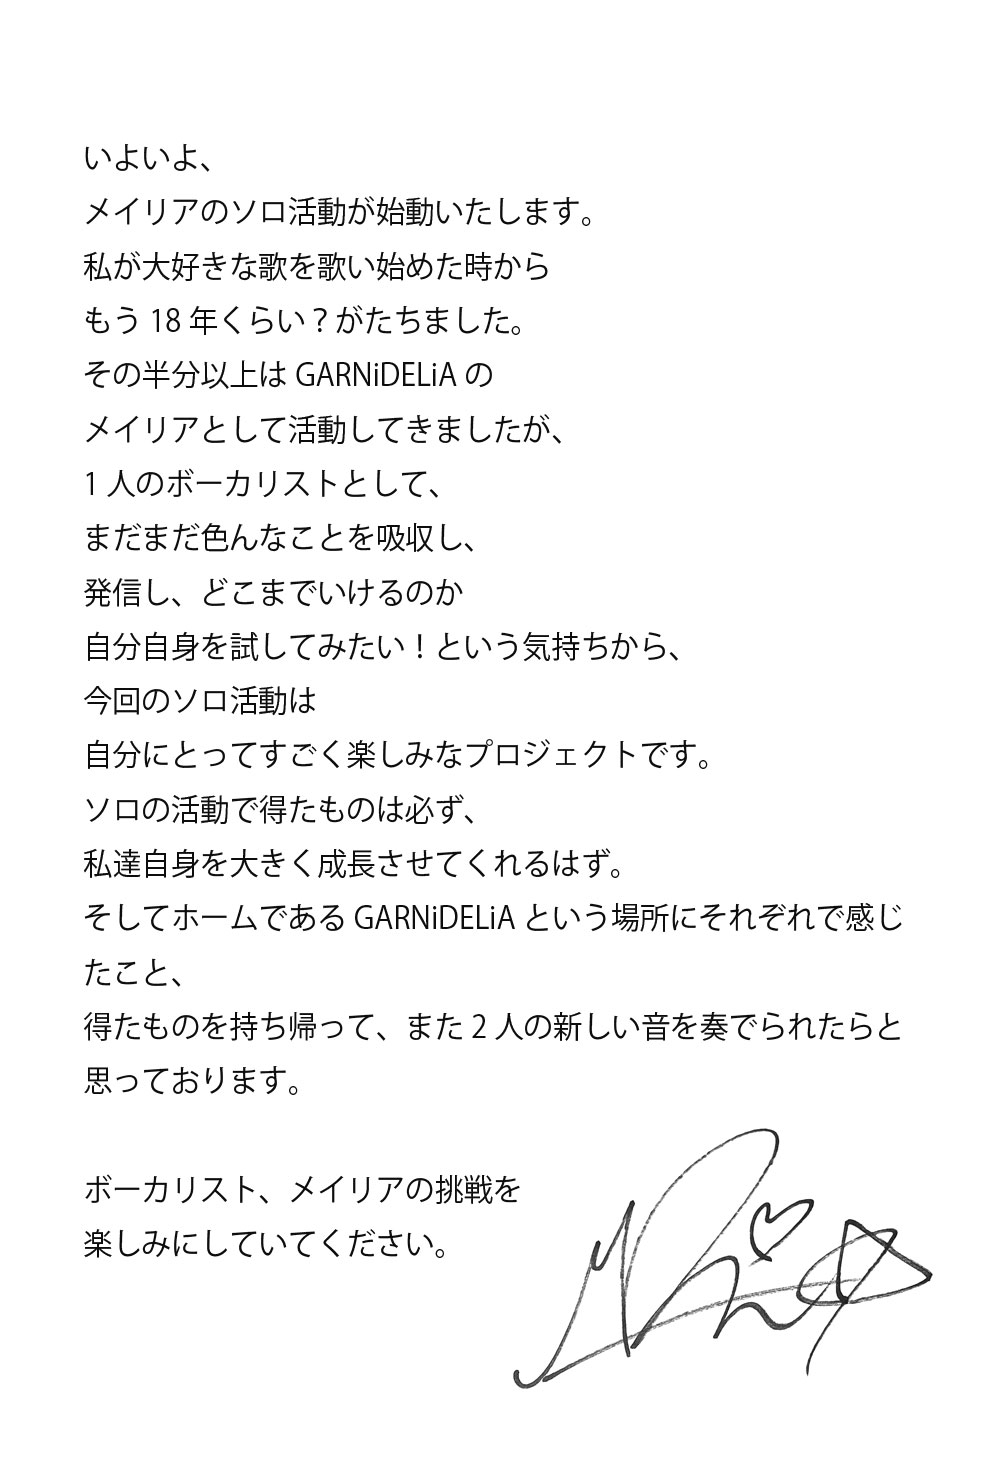 いよいよ、
メイリアのソロ活動が始動いたします。
私が大好きな歌を歌い始めた時から
もう 18 年くらい？がたちました。
その半分以上は GARNiDELiA の
メイリアとして活動してきましたが、
1 人のボーカリストとして、
まだまだ色んなことを吸収し、
発信し、どこまでいけるのか
自分自身を試してみたい！という気持ちから、
今回のソロ活動は
自分にとってすごく楽しみなプロジェクトです。
ソロの活動で得たものは必ず、
私達自身を大きく成長させてくれるはず。
そしてホームである GARNiDELiA という場所にそれぞれで感じ
たこと、
得たものを持ち帰って、また 2 人の新しい音を奏でられたらと
思っております。
ボーカリスト、メイリアの挑戦を
楽しみにしていてください。